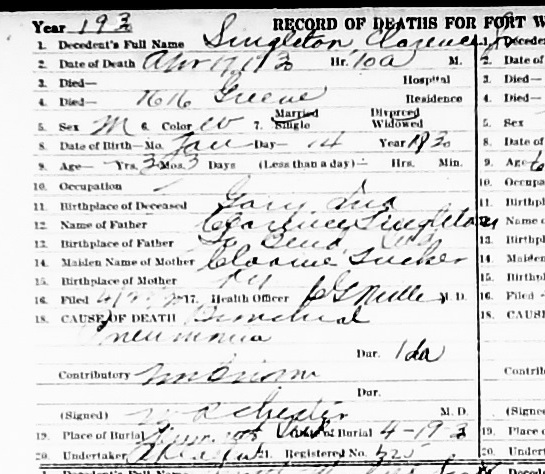 Year 193 RECORD OF DEATHS FOR FORT W
1. Decedent's Full Name Singleton, Clarence Jr
2. Date of Death Apr 17 193 Hr. 10 a M.
3. Died— Hospital
4. Died— 1616 Greene Residence
5. Sex M 6. Color W 7. Married Single Divorced Widowed
8. Date of Birth—Mo. Jan Day— 14 Year 193
9. Age— Yrs. 3 Mos. 3 Days (Less than a day)— Hrs. Min.
10. Occupation
11. Birthplace of Deceased Gary Ind
12. Name of Father Clarence Singleton
13. Birthplace of Father So Bend Ind
14. Maiden Name of Mother Tucker
15. Birthplace of Mother Ky
16. Filed 17. Health Officer M. D.
18. CAUSE OF DEATH Bronchial
Pneumonia
Dur. 1 da
Contributory
Dur.
(Signed) M. D.
19. Place of Burial Date of Burial 4-19-3
20. Undertaker 21. Registered No. 325
1. Deceden
2. Date of
3. Died—
4. Died—
5. Sex
8. Date of
9. Age
10. Occupa
11. Birthpl
12. Name o
13. Birthpl
14. Maiden
15. Birthpl
16. Filed
18. CAUSE
Contrib
(Signed
19. Place o
20. Undert